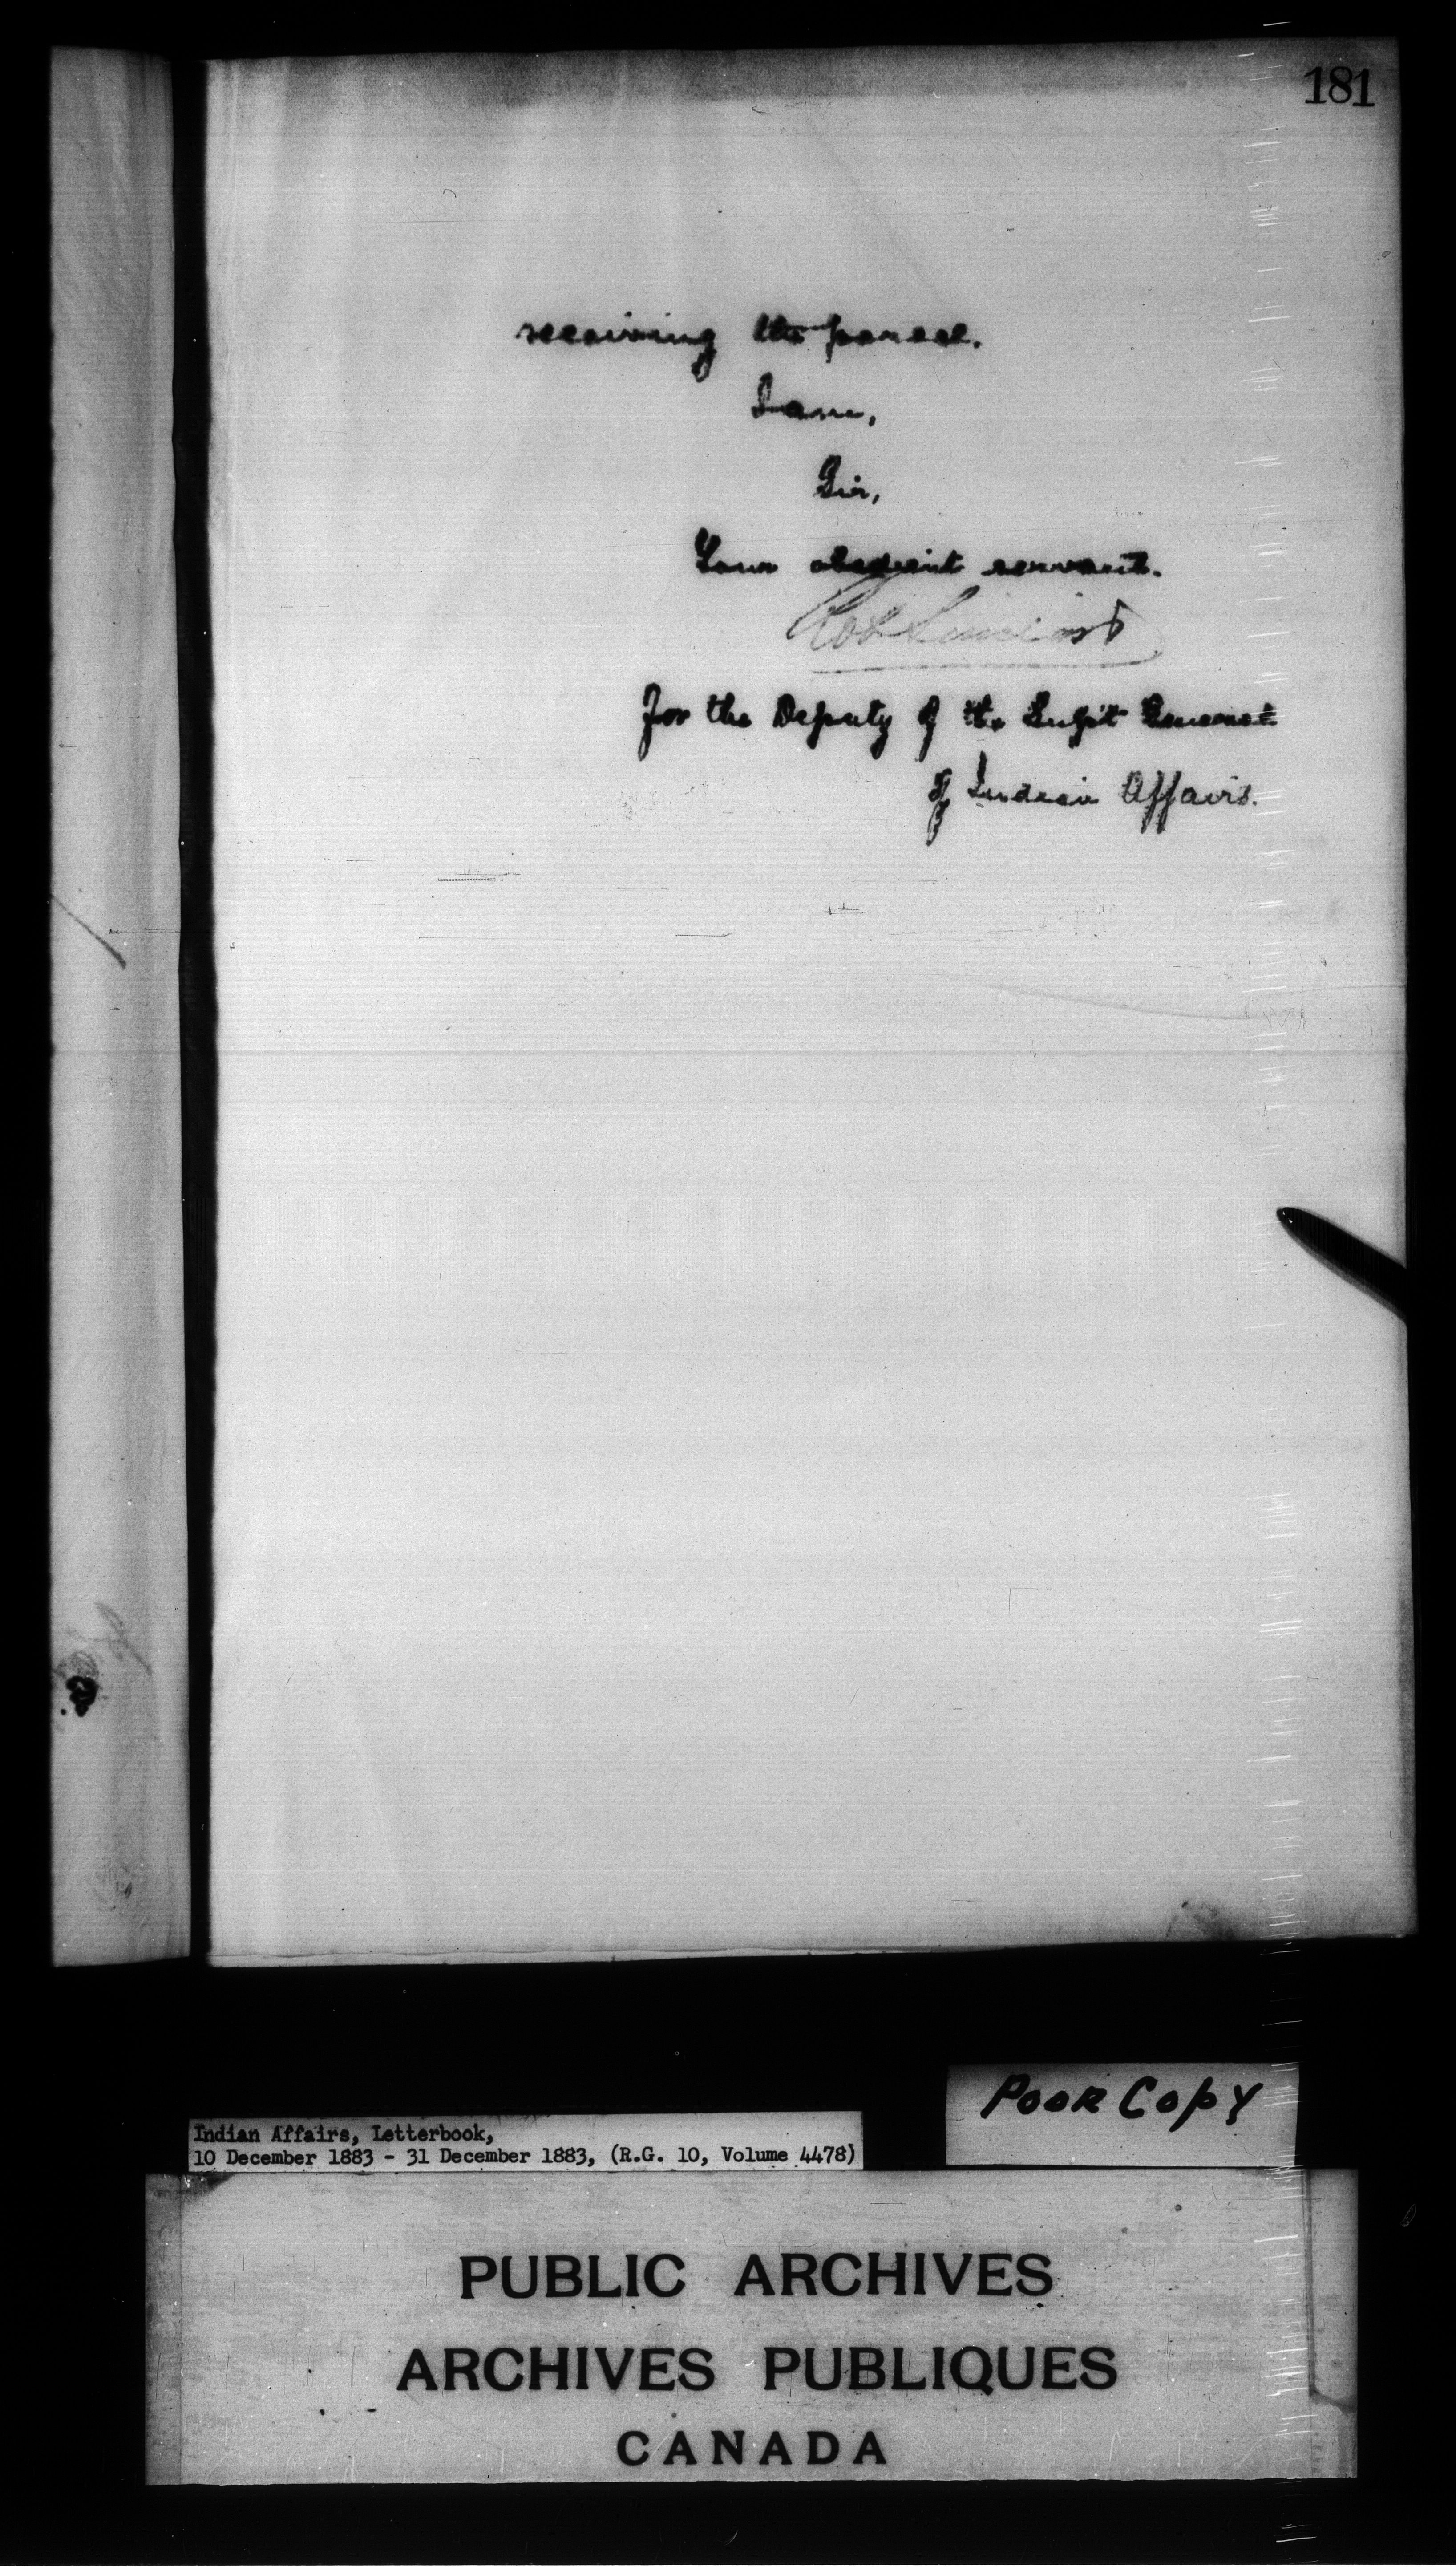 181
receiving the parcel.
I am,
Sir,
Your obedient servant.
Rob Sinclair
for the Deputy of the Supt General
of Indian Affairs.
Poor Copy
Indian Affairs, Letterbook,
10 December 1883 - 31 December 1883, (R.G. 10, Volume 4478)
PUBLIC ARCHIVES
ARCHIVES PUBLIQUES
CANADA